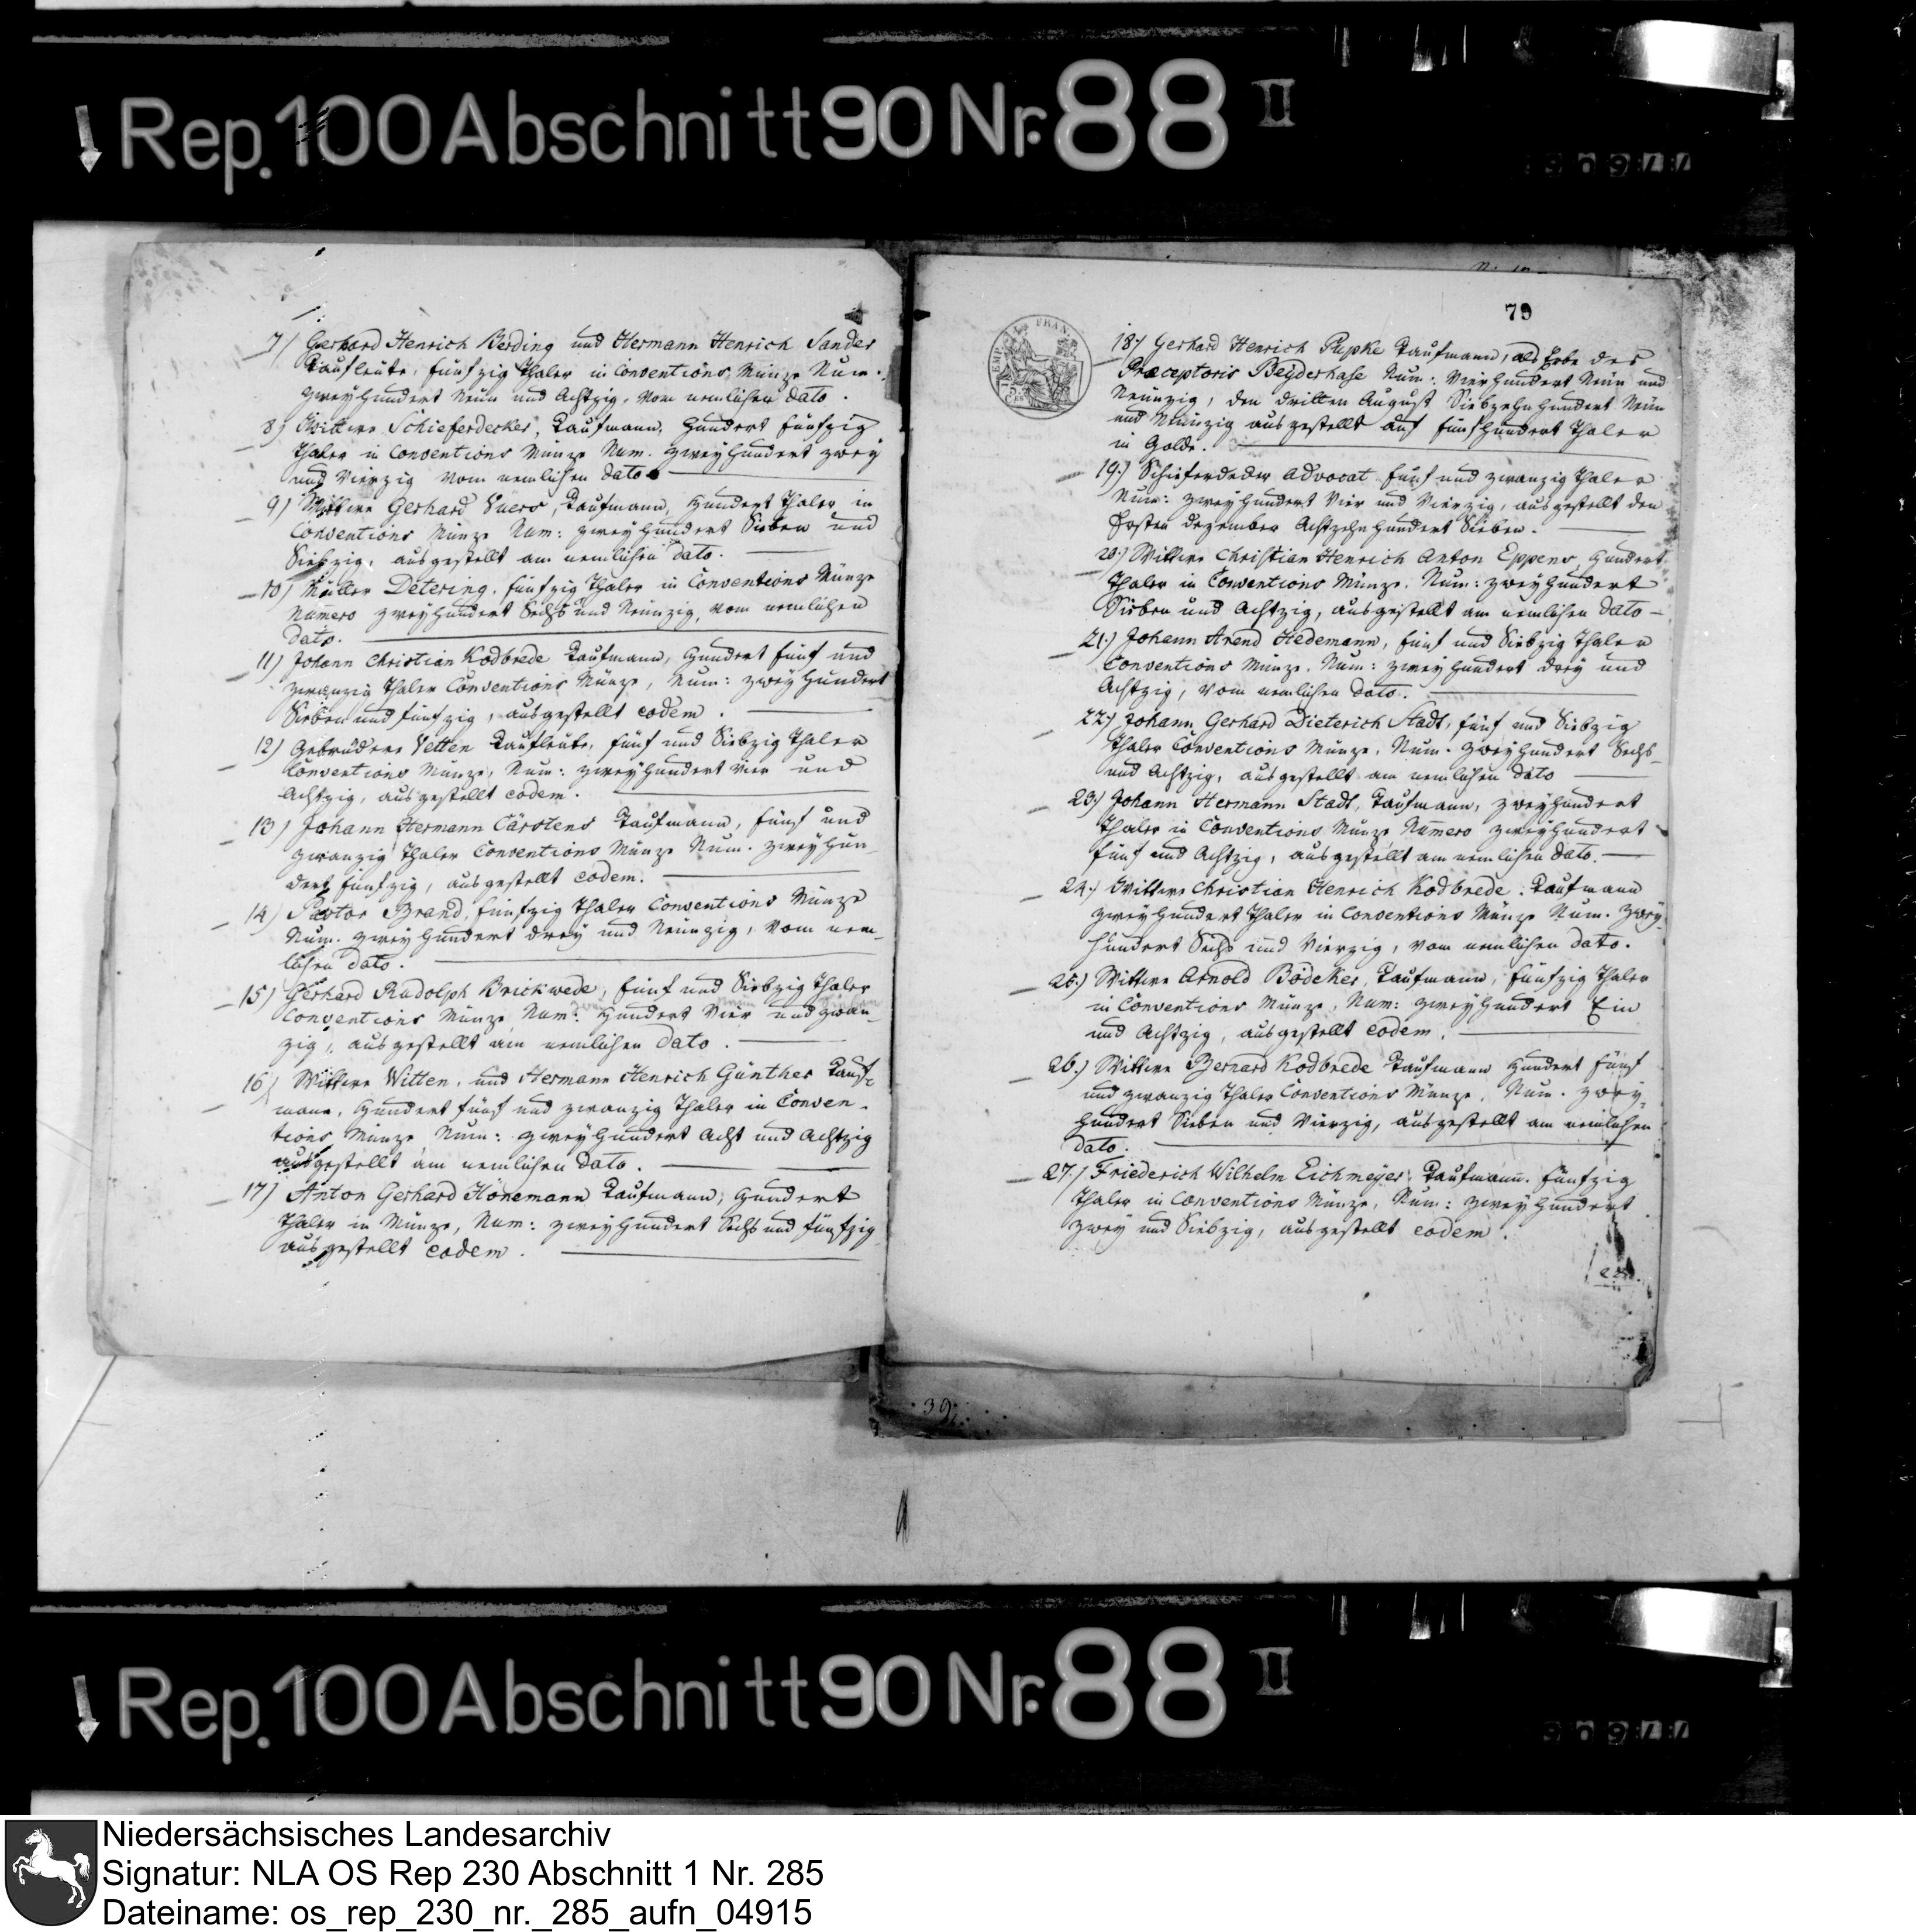 Rep. 100 Abschnitt 90 Nr. 88 II
7) Gerhard Henrich Berding und Hermann Henrich Sander
Kaufleute, fünfzig Thaler in Conventions Münze Num.
zweyhundert Neun und Achtzig, vom nemlichen dato.
8) Wittwe Schieferdecker, Kaufmann, Hundert fünfzig
Thaler in Conventions Münze Num. zweyhundert zwey
und Vierzig vom nemlichen dato
9) Wittwe Gerhard Kaufmann, Hundert Thaler in
Conventions Münze Num: zweyhundert Sieben und
Siebzig, ausgestellt am nemlichen dato.
10) Müller Detering, fünfzig Thaler in Conventions Münze
Numero zweyhundert Sechs und Neunzig, vom nemlichen
dato.
11) Johann Christian Kodbrede Kaufmann, Hundert fünf und
zwanzig Thaler Conventions Münze, Num: zweyhundert
Sieben und fünfzig, ausgestellt eodem.
12) Gebrüdere Vetten Kaufleute, fünf und Siebzig Thaler
Conventions Münze, Num: zweyhundert Vier und
Achtzig, ausgestellt eodem.
13) Johann Hermann Carstens Kaufmann, fünf und
zwanzig Thaler Conventions Münze Num. zweyhun-
dert fünfzig, ausgestellt eodem.
14) Pastor Brand, fünfzig Thaler Conventions Münze
Num. zweyhundert drey und Neunzig, vom nem-
lichen dato.
15) Gerhard Rudolph Brickwede, fünf und Siebzig Thaler
Conventions Münze Num: Hundert Vier und zwan-
zig, ausgestellt am nemlichen dato.
16) Wittwe Witten, und Hermann Henrich Günther Kauf-
mann, Hundert fünf und zwanzig Thaler in Conven-
tions Münze Num: zweyhundert Acht und Achtzig
ausgestellt am nemlichen dato.
17) Anton Gerhard Hönemann Kaufmann, Hundert
Thaler in Münze, Num: zweyhundert Sechs und fünfzig
ausgestellt eodem.
79
EMP. FRAN.
18.) Gerhard Henrich Pupke Kaufmann, als Erbe des
Præceptoris Beyderhase Num: Vierhundert Neun und
Neunzig, den dritten August Siebzehnhundert Neun
und Neunzig ausgestellt auf fünfhundert Thaler
in Golde.
19.) Schieferdecker Advocat fünf und zwanzig Thaler
Num: zweyhundert Vier und Vierzig, ausgestellt den
Ersten dezember Achtzehnhundert Sieben.
20.) Wittwe Christian Henrich Anton Eppens, Hundert
Thaler in Conventions Münze. Num: zweyhundert
Sieben und Achtzig, ausgestellt am nemlichen dato
21.) Johann Arend Hedemann, fünf und Siebzig Thaler
Conventions Münze. Num: zweyhundert drey und
Achtzig, vom nemlichen dato.
22.) Johann Gerhard Dieterich Stadt, fünf und Siebzig
Thaler Conventions Münze, Num. zweyhundert Sechs
und Achtzig, ausgestellt am nemlichen dato
23.) Johann Hermann Stadt, Kaufmann, zweyhundert
Thaler in Conventions Münze Numero zweyhundert
fünf und Achtzig, ausgestellt am nemlichen dato.
24.) Wittwe Christian Henrich Kodbrede, Kaufmann
zweyhundert Thaler in Conventions Münze Num. zwey-
hundert Sechs und Vierzig, vom nemlichen dato.
25.) Wittwe Arnold Bödeker, Kaufmann, fünfzig Thaler
in Conventions Münze, Num: zweyhundert Ein
und Achtzig, ausgestellt eodem.
26.) Wittwe Bernard Kodbrede Kaufmann Hundert fünf
und zwanzig Thaler Conventions Münze, Num. zwey-
hundert Sieben und Vierzig, ausgestellt am nemlichen
dato.
27.) Friederich Wilhelm Eichmeyer, Kaufmann, fünfzig
Thaler in Conventions Münze, Num: zweyhundert
zwey und Siebzig, ausgestellt eodem.
39.
Rep. 100 Abschnitt 90 Nr. 88 II
Niedersächsisches Landesarchiv
Signatur: NLA OS Rep 230 Abschnitt 1 Nr. 285
Dateiname: os_rep_230_nr._285_aufn_04915